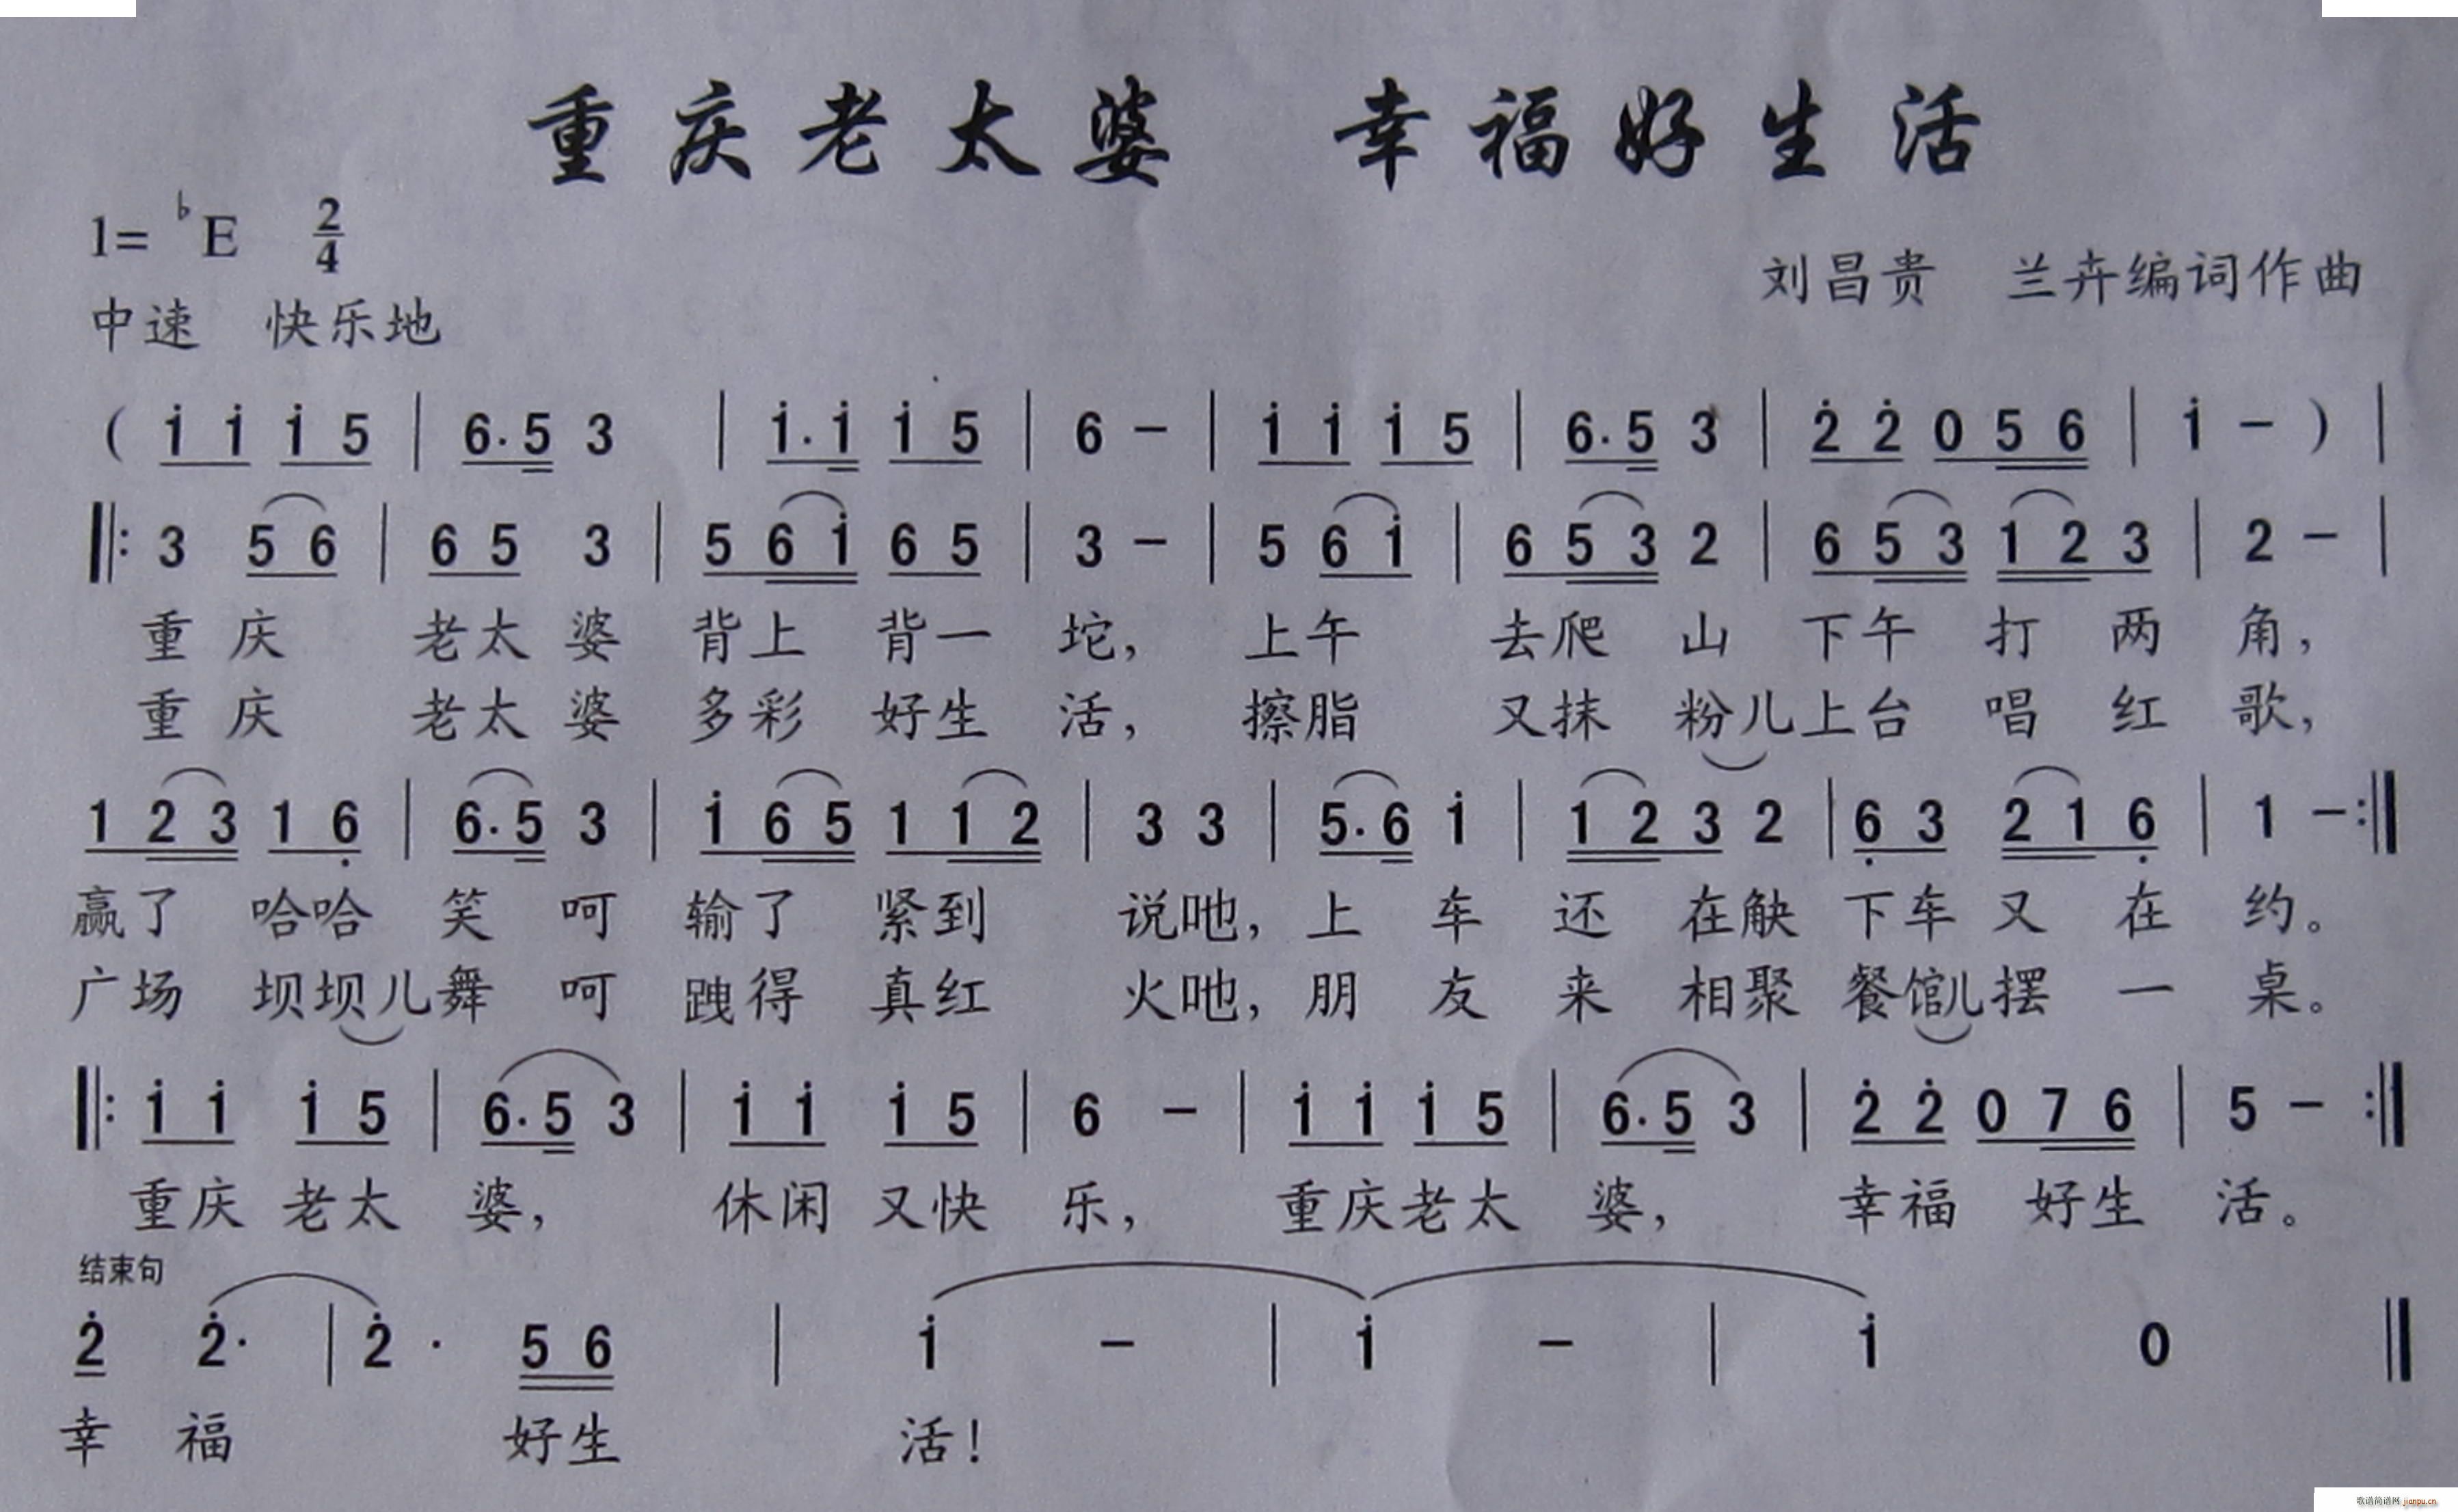 重庆老太婆 幸福好生活
1= ♭E 2/4
刘昌贵 兰卉编词作曲
中速 快乐地
( i i i 5 | 6·5 3 | i·i i 5 | 6 - | i i i 5 | 6·5 3 | 2̇ 2̇ 0 5 6 | i - ) |
‖: 3 5 6 | 6 5 3 | 5 6 i 6 5 | 3 - | 5 6 i | 6 5 3 2 | 6 5 3 1 2 3 | 2 - |
重庆 老太婆 背上 背一 坨, 上午 去爬 山 下午 打 两 角,
重庆 老太婆 多彩 好生 活, 擦脂 又抹 粉儿上台 唱 红 歌,
1 2 3 1 6̣ | 6·5 3 | i 6 5 1 1 2 | 3 3 | 5·6 i | 1 2 3 2 | 6̣ 3 2 1 6̣ | 1 - :‖
赢了 哈哈 笑 呵 输了 紧到 说吔, 上 车 还 在觖 下车 又 在 约。
广场 坝坝儿舞 呵 跩得 真红 火吔, 朋 友 来 相聚 餐馆儿摆 一 桌。
‖: i i i 5 | 6·5 3 | i i i 5 | 6 - | i i i 5 | 6·5 3 | 2̇ 2̇ 0 7 6 | 5 - :‖
重庆 老太 婆, 休闲 又快 乐, 重庆老太 婆, 幸福 好生 活。
结束句
2̇ 2̇· | 2̇· 5 6 | i - | i - | i 0 ‖
幸 福 好生 活!
歌谱简谱网 jianpu.cn